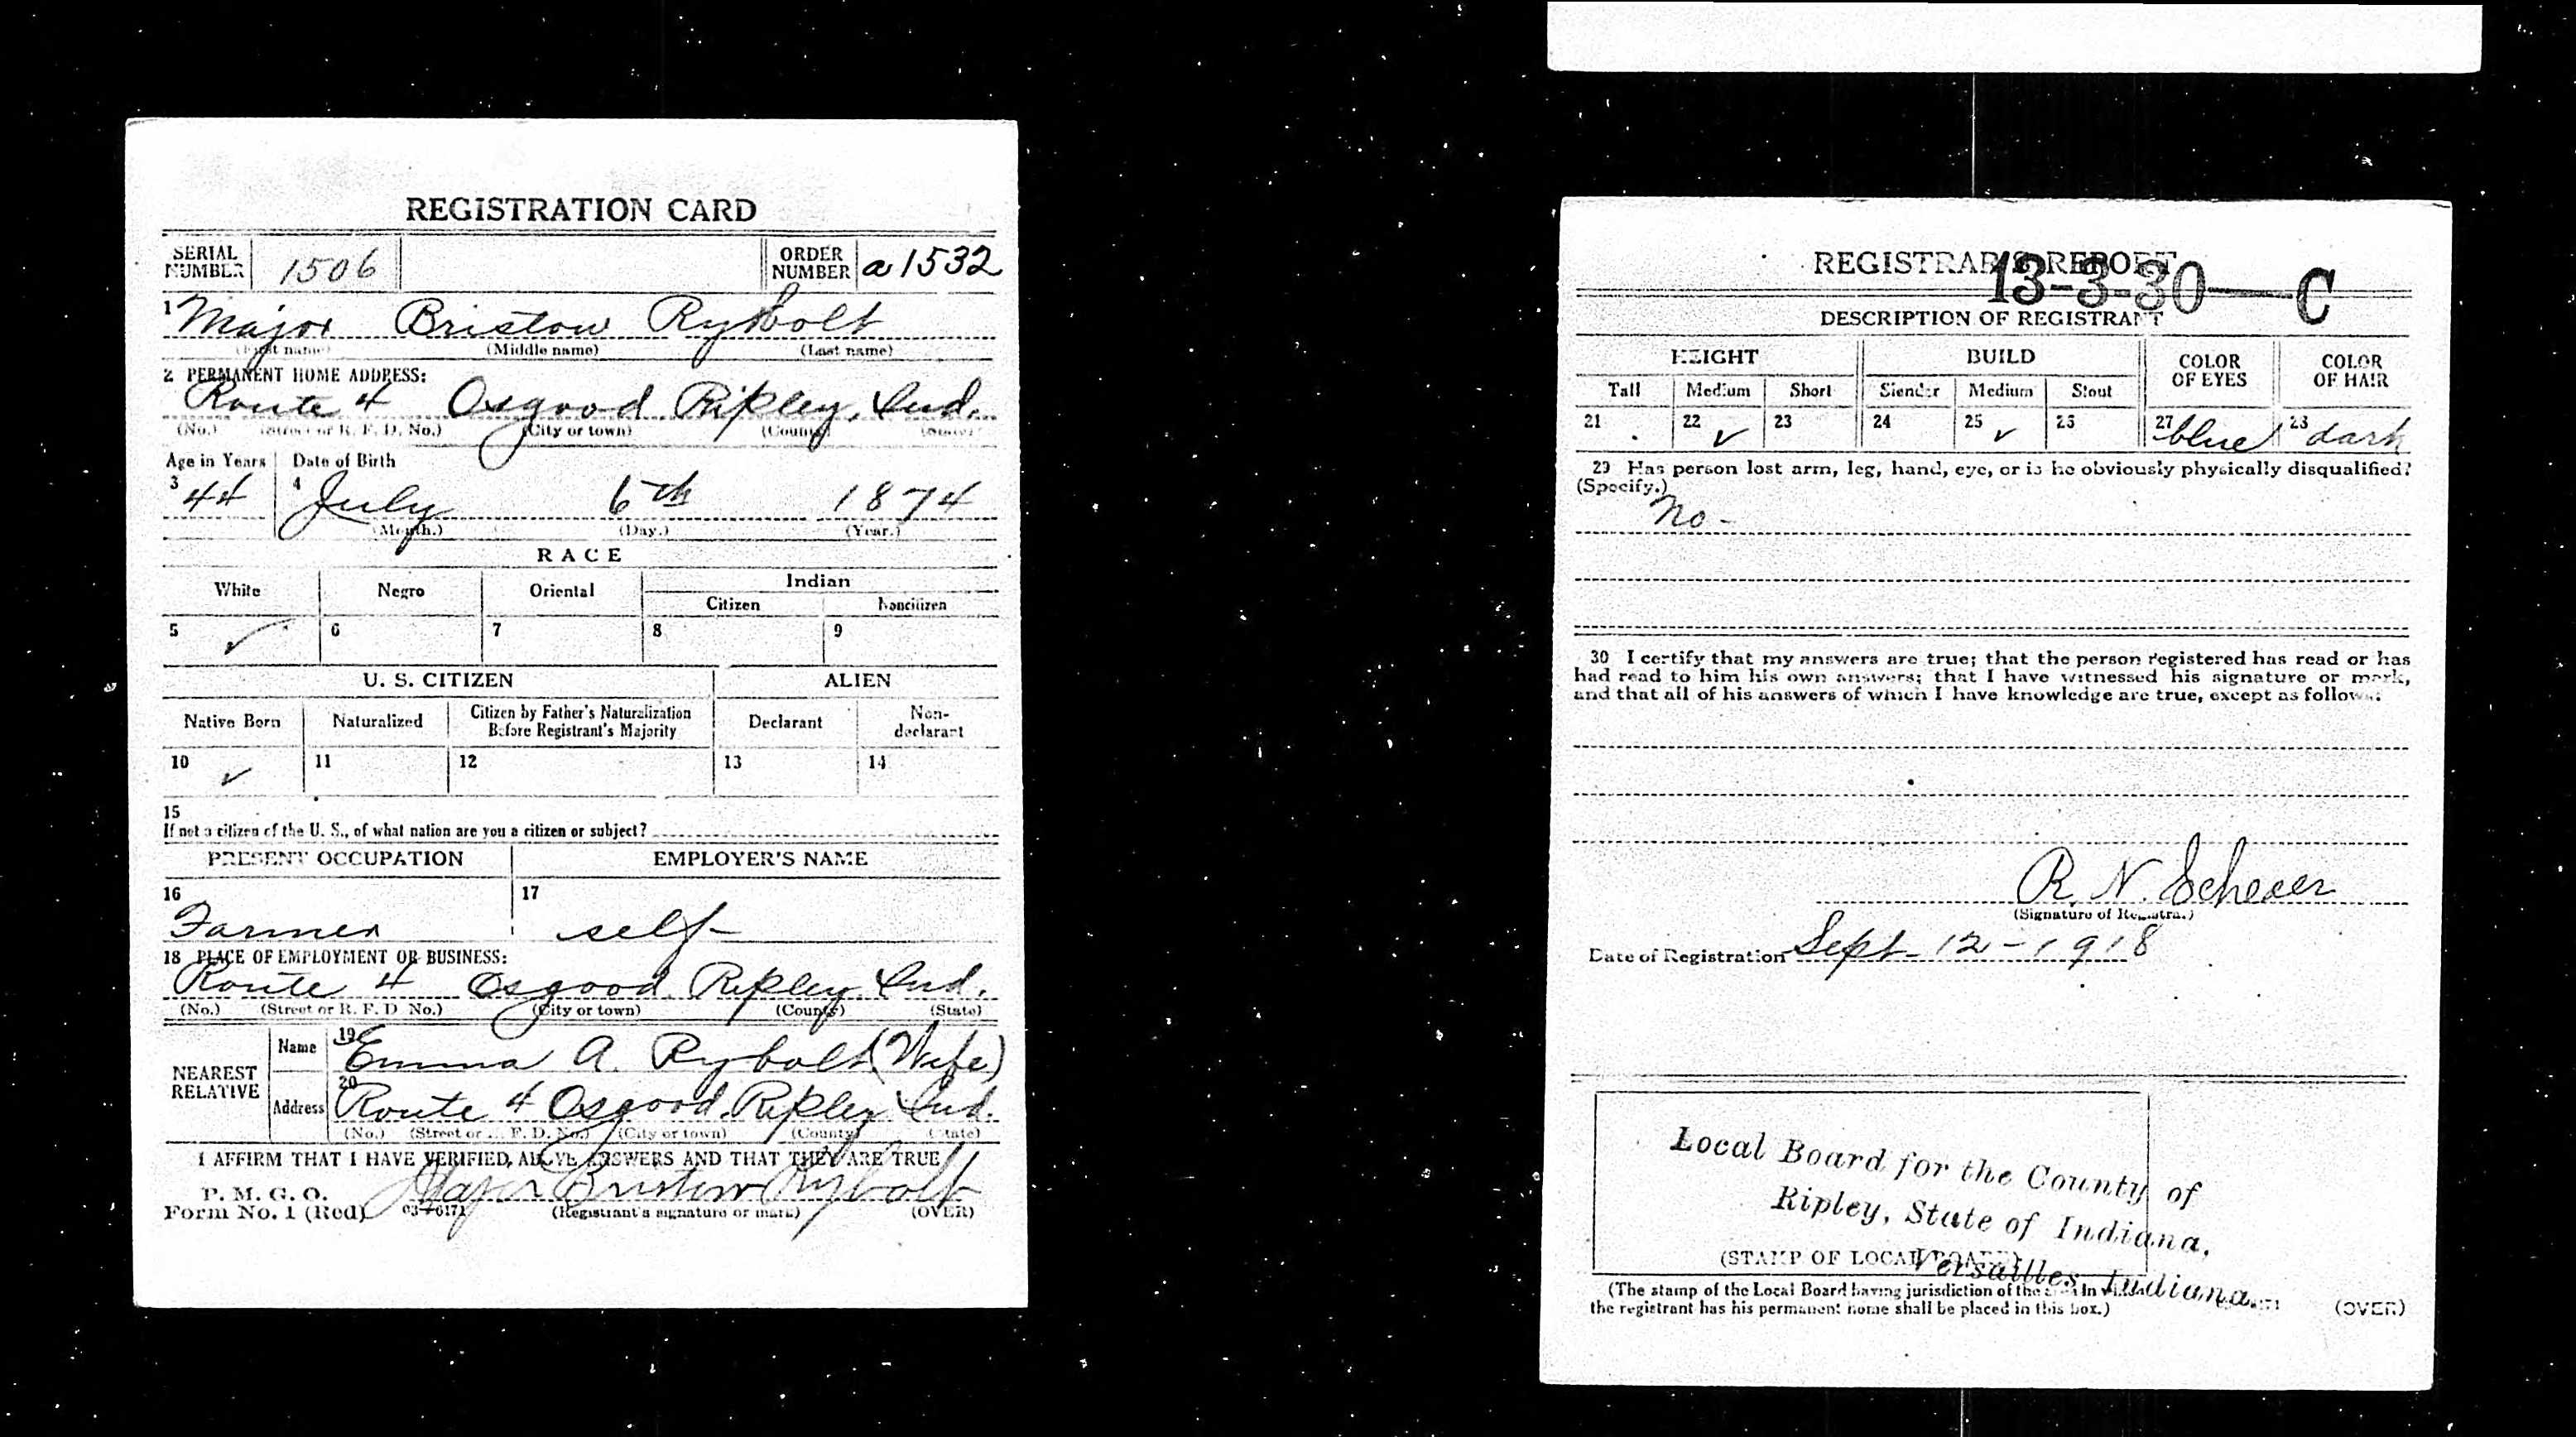 REGISTRATION CARD
SERIAL NUMBER 1506 ORDER NUMBER a1532
1 Major Bristow Rybolt
(First name) (Middle name) (Last name)
2 PERMANENT HOME ADDRESS:
Route 4 Osgood Ripley, Ind.
(No.) (Street or R. F. D. No.) (City or town) (County) (State)
Age in Years Date of Birth
3 44 4 July 6th 1874
(Month.) (Day.) (Year.)
RACE
White Negro Oriental Indian
Citizen Noncitizen
5 ✓ 6 7 8 9
U. S. CITIZEN ALIEN
Native Born Naturalized Citizen by Father's Naturalization Before Registrant's Majority Declarant Non-declarant
10 ✓ 11 12 13 14
15
If not a citizen of the U. S., of what nation are you a citizen or subject?
PRESENT OCCUPATION EMPLOYER'S NAME
16 17
Farmer self
18 PLACE OF EMPLOYMENT OR BUSINESS:
Route 4 Osgood Ripley Ind.
(No.) (Street or R. F. D. No.) (City or town) (County) (State)
NEAREST RELATIVE
Name 19 Emma A. Rybolt (Wife)
Address 20 Route 4 Osgood, Ripley Ind.
(No.) (Street or F. D. No.) (City or town) (County) (State)
I AFFIRM THAT I HAVE VERIFIED ABOVE ANSWERS AND THAT THEY ARE TRUE
P. M. G. O.
Form No. 1 (Red) 03-6171 Major Bristow Rybolt
(Registrant's signature or mark) (OVER)
REGISTRAR'S REPORT
13-3-30-C
DESCRIPTION OF REGISTRANT
HEIGHT BUILD COLOR OF EYES COLOR OF HAIR
Tall Medium Short Slender Medium Stout
21 22 ✓ 23 24 25 ✓ 26 27 blue 28 dark
29 Has person lost arm, leg, hand, eye, or is he obviously physically disqualified?
(Specify.)
No -
30 I certify that my answers are true; that the person registered has read or has
had read to him his own answers; that I have witnessed his signature or mark,
and that all of his answers of which I have knowledge are true, except as follows:
R. N.
(Signature of Registrar)
Date of Registration Sept - 12 - 1918
Local Board for the County of
Ripley, State of Indiana,
Versailles, Indiana.
(STAMP OF LOCAL BOARD)
(The stamp of the Local Board having jurisdiction of the area in which
the registrant has his permanent home shall be placed in this box.)
(OVER)